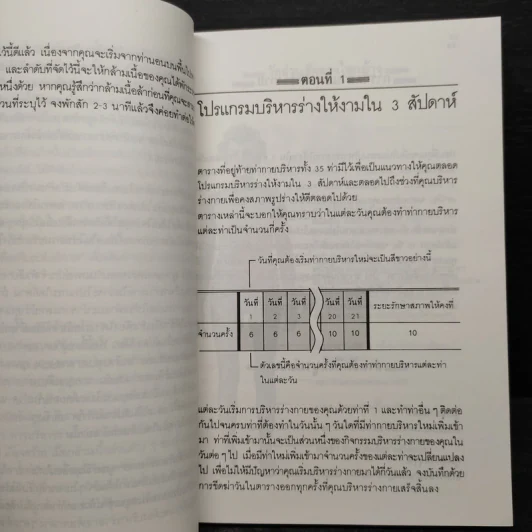 ว้นี้ดีแล้ว เนื่องจากคุณจะเริ่มจากท่านอนบนพื้น
และลำดับที่จัดไว้นี้จะให้กล้ามเนื้อของคุณได้
หนึ่งด้วย หากคุณรู้สึกว่ากล้ามเนื้อล้าก่อนที่คุณจะ
วนที่ระบุไว้ จงพักสัก 2-3 นาทีแล้วจึงค่อยทำต่อ
ตอนที่ 1
โปรแกรมบริหารร่างให้งามใน 3 สัปดาห์
ตารางที่อยู่ท้ายท่ากายบริหารทั้ง 35 ท่ามีไว้เพื่อเป็นแนวทางให้คุณตลอด
โปรแกรมบริหารร่างให้งามใน 3 สัปดาห์และตลอดไปถึงช่วงที่คุณบริหาร
ร่างกายเพื่อคงสภาพรูปร่างให้ดีตลอดไปด้วย
ตารางเหล่านี้จะบอกให้คุณทราบว่าในแต่ละวันคุณต้องทำท่ากายบริหาร
แต่ละท่าเป็นจำนวนกี่ครั้ง
วันที่คุณต้องเริ่มท่ากายบริหารใหม่จะเป็นสีขาวอย่างนี้
วันที่ 1 วันที่ 2 วันที่ 3 วันที่ 20 วันที่ 21 ระยะรักษาสภาพให้คงที่
จำนวนครั้ง 6 6 6 10 10 10
ตัวเลขนี้คือจำนวนครั้งที่คุณต้องทำท่ากายบริหารแต่ละท่า
ในแต่ละวัน
แต่ละวันเริ่มการบริหารร่างกายของคุณด้วยท่าที่ 1 และทำท่าอื่น ๆ ติดต่อ
กันไปจนครบท่าที่ต้องทำในวันนั้น ๆ วันใดที่มีท่ากายบริหารใหม่เพิ่มเข้า
มา ท่าที่เพิ่มเข้ามานั้นจะเป็นส่วนหนึ่งของกิจกรรมบริหารร่างกายของคุณใน
วันต่อ ๆ ไป เมื่อมีท่าใหม่เพิ่มเข้ามาจำนวนครั้งของแต่ละท่าจะเปลี่ยนแปลง
ไป เพื่อไม่ให้มีปัญหาว่าคุณเริ่มบริหารร่างกายมาได้กี่วันแล้ว จงบันทึกด้วย
การขีดฆ่าวันในตารางออกทุกครั้งที่คุณบริหารร่างกายเสร็จสิ้นลง